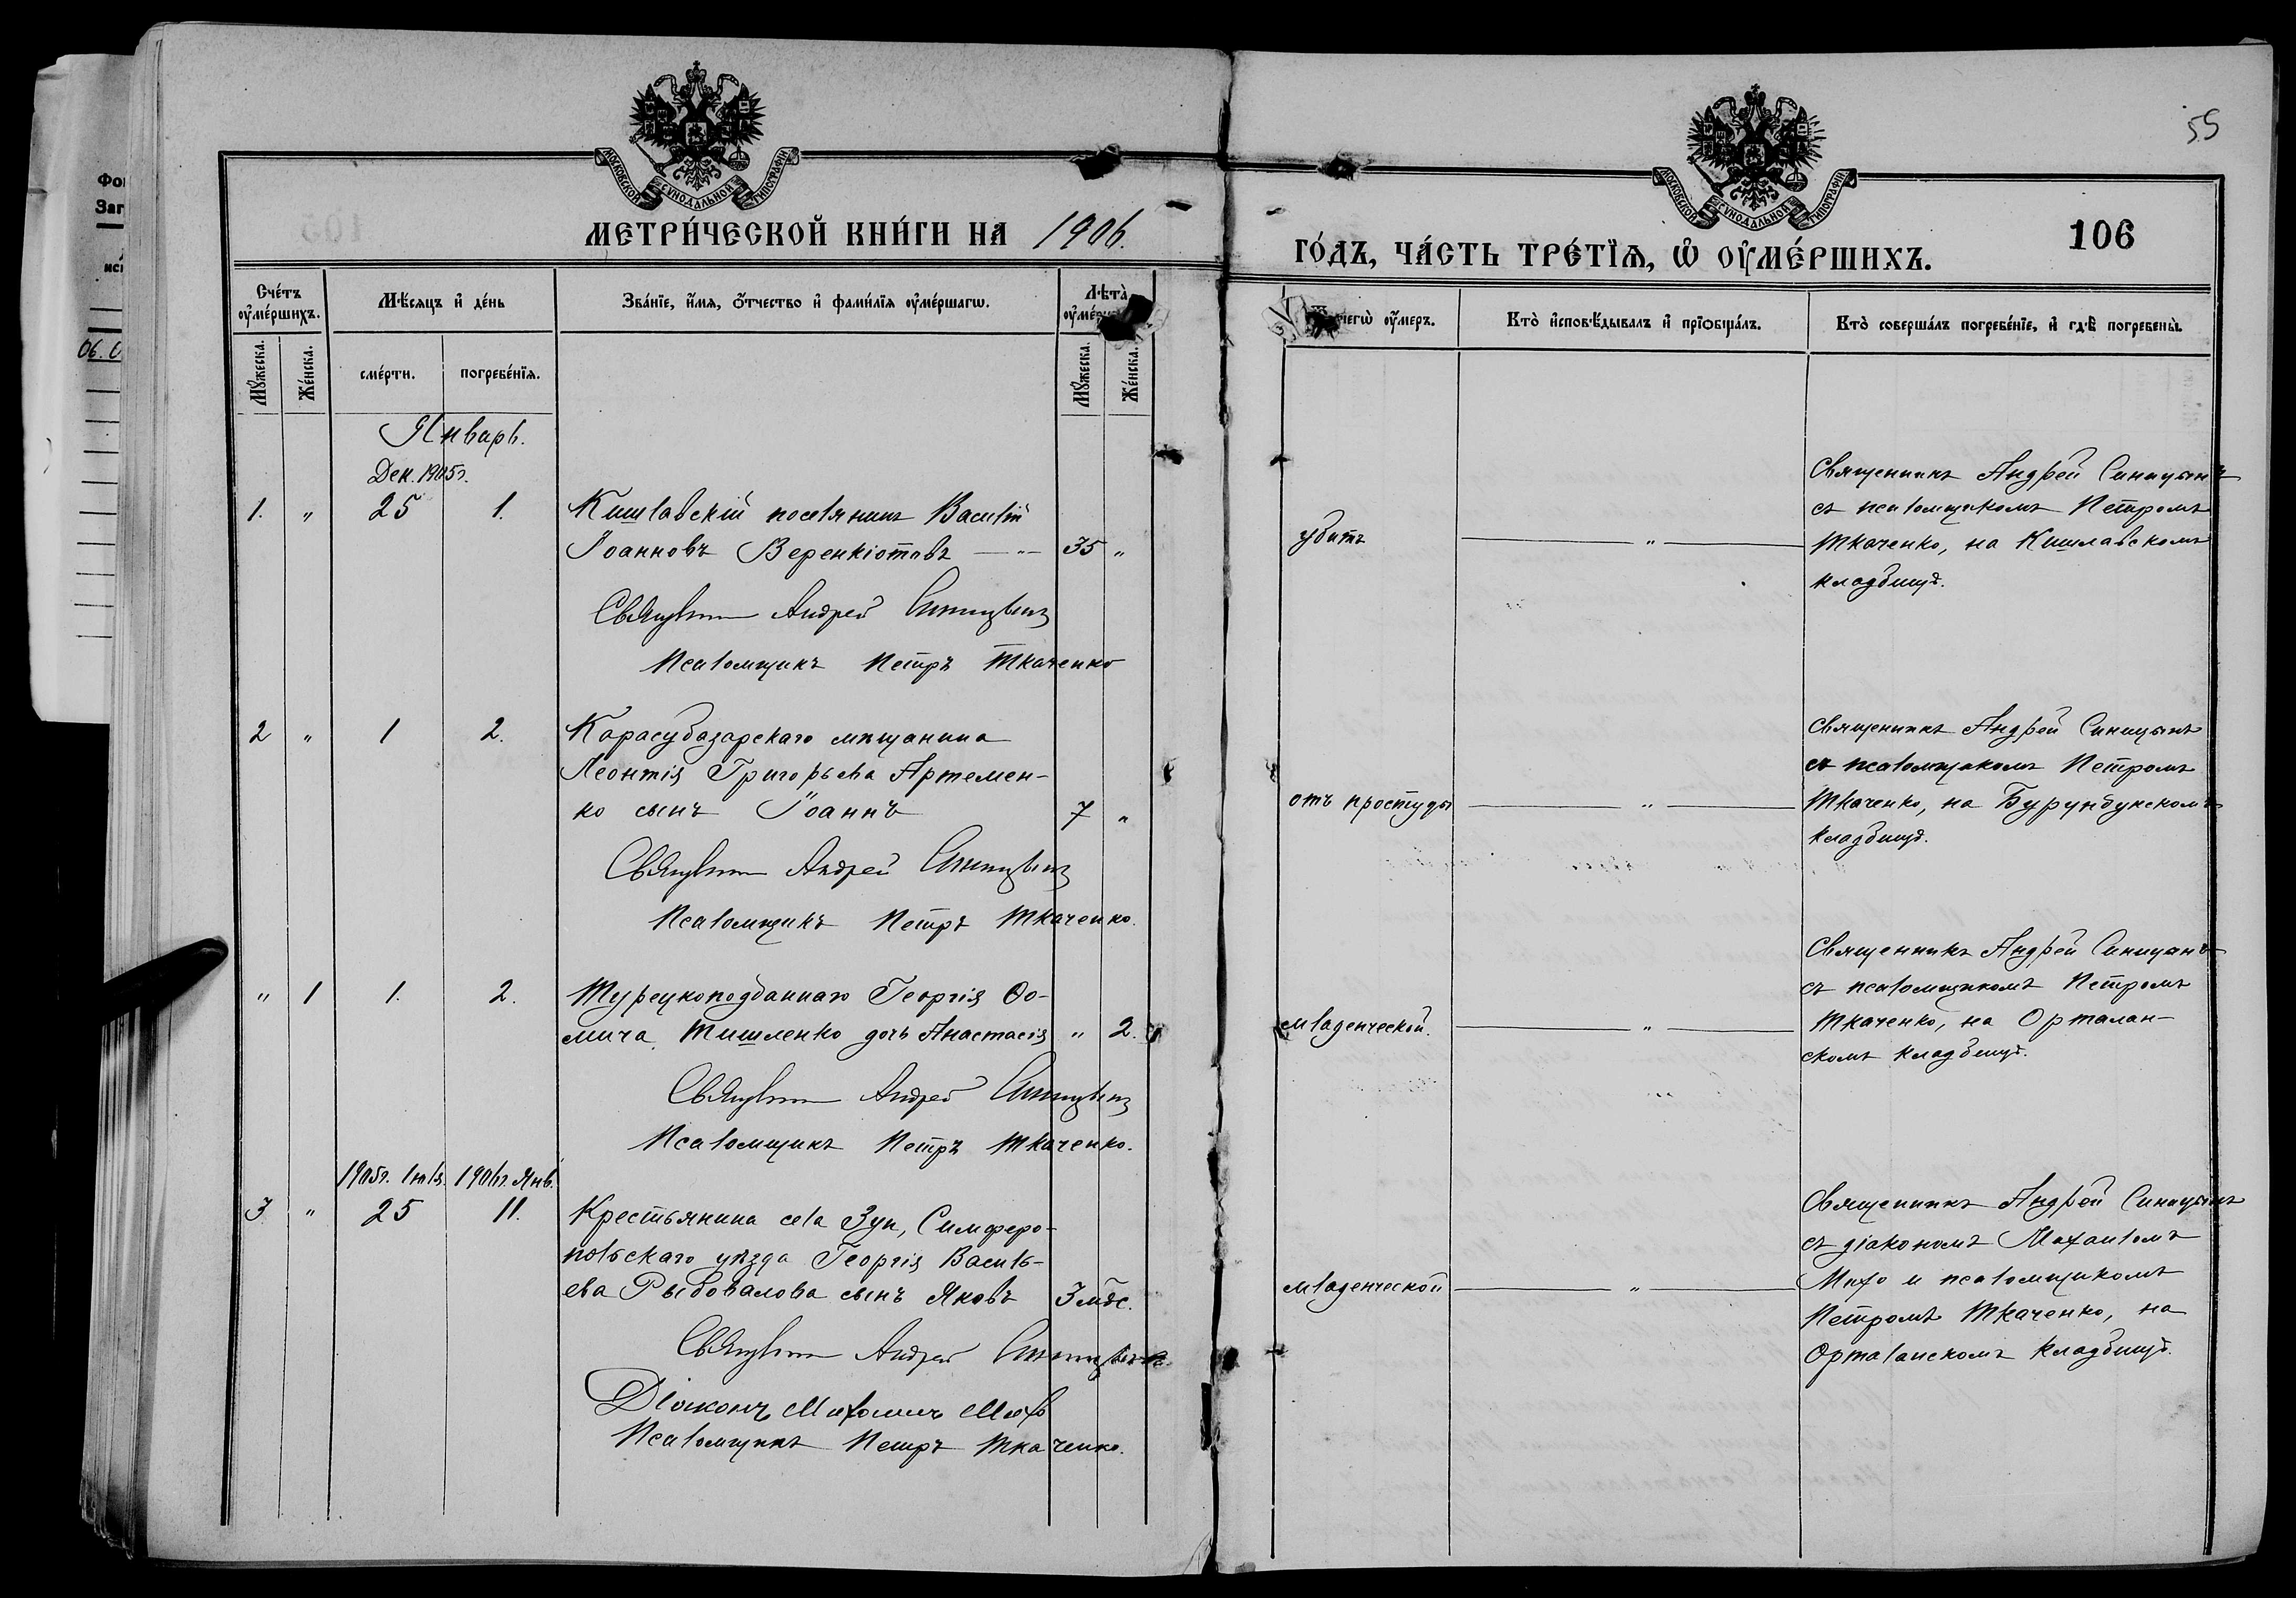 55
МОСКОВСКОЙ СѴНОДАЛЬНОЙ ТИПОГРАФІИ
МОСКОВСКОЙ СѴНОДАЛЬНОЙ ТИПОГРАФІИ
МЕТРИ́ЧЕСКОЙ КНИ́ГИ НА 1906.
ГО́ДЪ, ЧА́СТЬ ТРЕ́ТЇѦ, Ѽ ОУ҆МЕ́РШИХЪ.
106
Сче́тъ оу҆ме́ршихъ.
Мꙋ́жеска.
Же́нска.
Мѣ́сяцъ и҆ де́нь
сме́рти.
погребе́нїѧ.
Зва́нїе, и҆́мѧ, ѻ҆́тчество и҆ фами́лїѧ оу҆ме́ршагѡ.
Лѣ́та̀
Мꙋ́жеска.
Же́нска.
оу҆́меръ.
Кто̀ и҆сповѣ́дывалъ и҆ прїѻбща́лъ.
Кто̀ соверша́лъ погребе́нїе, и҆ гдѣ̀ погребены̀.
Январь.
Дек. 1905г.
1. " 25 1. Кишлавскій поселянинъ Василій
Іоанновъ Веренкіотовъ — " — 35 "
Священникъ Андрей Синицынъ
Псаломщикъ Петръ Ткаченко
убитъ
"
Священникъ Андрей Синицынъ
съ псаломщикомъ Петромъ
Ткаченко, на Кишлавскомъ
кладбищѣ.
2 " 1 2. Карасубазарскаго мѣщанина
Леонтія Григорьева Артемен-
ко сынъ Іоаннъ 7 "
Священникъ Андрей Синицынъ
Псаломщикъ Петръ Ткаченко.
отъ простуды
"
Священникъ Андрей Синицынъ
съ псаломщикомъ Петромъ
Ткаченко, на Бурундукскомъ
кладбищѣ.
" 1 1. 2. Турецкоподданнаго Георгія Ѳо-
мича Тишленко дочь Анастасія " 2.
Священникъ Андрей Синицынъ
Псаломщикъ Петръ Ткаченко.
младенческой.
"
Священникъ Андрей Синицынъ
съ псаломщикомъ Петромъ
Ткаченко, на Орталан-
скомъ кладбищѣ.
1905г. Іюля. 1906г. Янв.
3 " 25 11. Крестьянина села Зуи, Симферо-
польскаго уѣзда Георгія Василь-
ева Рыбовалова сынъ Яковъ 3 мѣс.
Священникъ Андрей Синицынъ
Діаконъ Михаилъ Михо
Псаломщикъ Петръ Ткаченко.
младенческой
"
Священникъ Андрей Синицынъ
съ діакономъ Михаиломъ
Михо и псаломщикомъ
Петромъ Ткаченко, на
Орталанскомъ кладбищѣ.